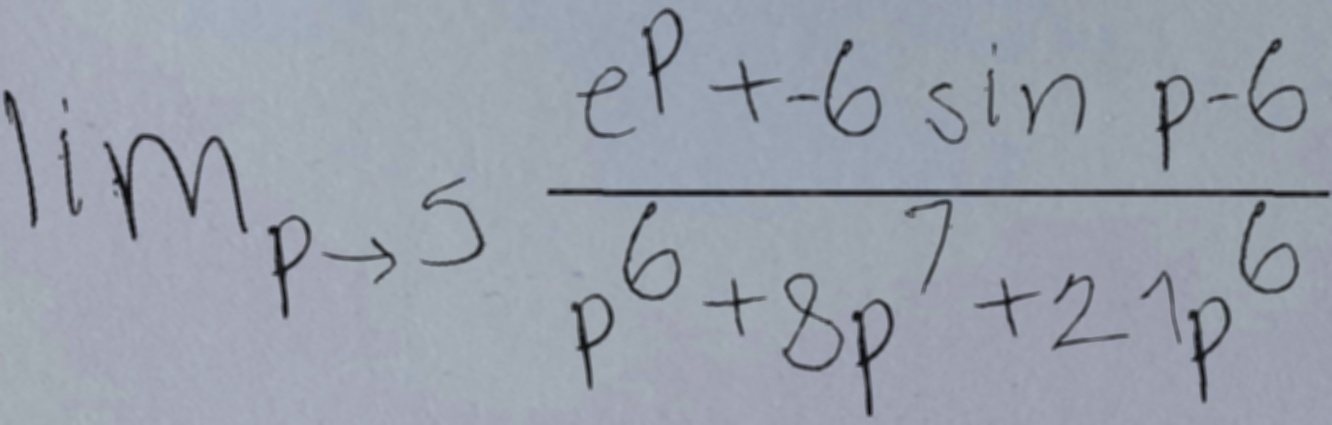 lim p→5 (e^p + -6 sin p - 6) / (p^6 + 8p^7 + 21p^6)